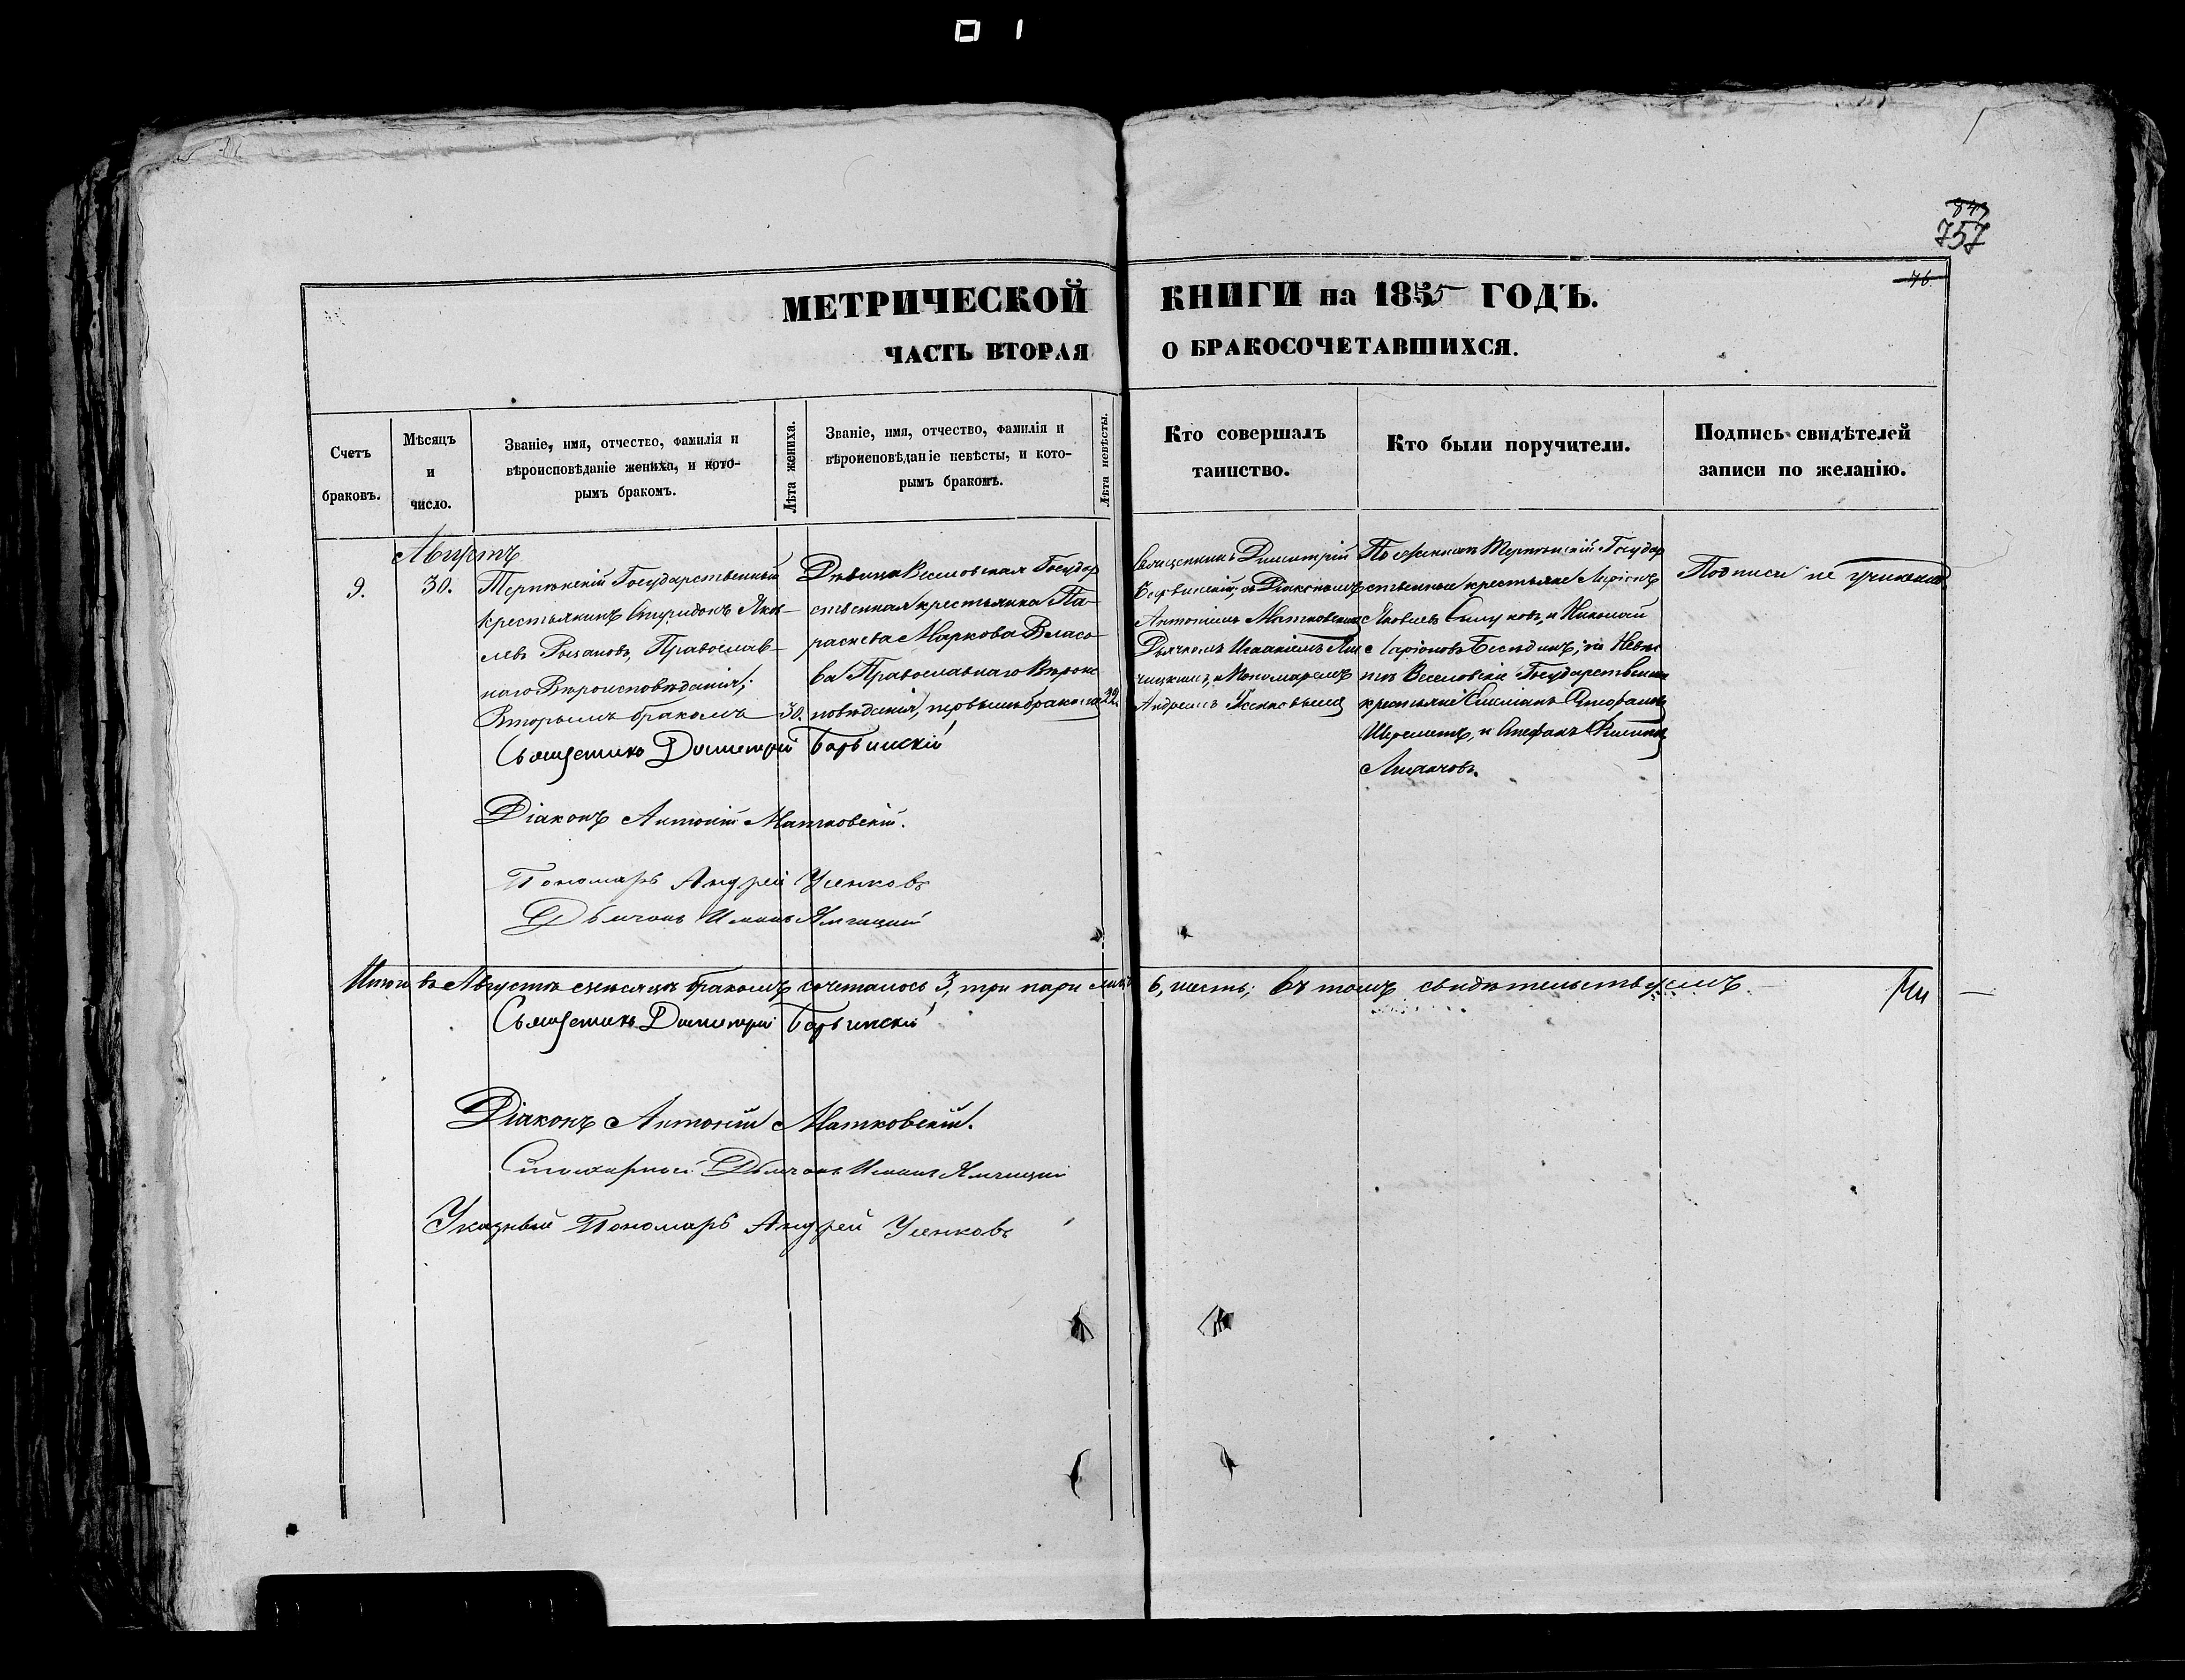 849
757
76
МЕТРИЧЕСКОЙ КНИГИ на 1855 ГОДЪ.
ЧАСТЬ ВТОРАЯ О БРАКОСОЧЕТАВШИХСЯ.
Счетъ
браковъ.
Мѣсяцъ
и
число.
Званіе, имя, отчество, фамилія и
вѣроисповѣданіе жениха, и кото-
рымъ бракомъ.
Лѣта жениха.
Званіе, имя, отчество, фамилія и
вѣроисповѣданіе невѣсты, и кото-
рымъ бракомъ.
Лѣта невѣсты.
Кто совершалъ
таинство.
Кто были поручители.
Подпись свидѣтелей
записи по желанію.
Августъ
9.
30.
Терпѣнскій Государственный
крестьянинъ Спиридонъ Яков-
левъ Православ-
наго Вѣроисповѣданія;
Вторымъ бракомъ
30.
Дѣвица Веселовская Государ
ственная крестьянка Па-
расковья Маркова Власо-
ва Православнаго Вѣроис
повѣданія, первымъ бракомъ
22.
Священникъ Димитрій
съ Діакономъ
Антоніемъ Матковскимъ
Дьячкомъ Исаакіемъ
и Пономаремъ
Андреемъ
По женихѣ Терпѣнскій Государ
ственные крестьяне Ларіонъ
Яковлевъ и Николай
Ларіоновъ Бесѣдинъ; по Невѣс
тѣ Веселовскіе Государственные
крестьяне Емеліанъ
Шереметъ, и Стефанъ Филипповъ
Лихачовъ.
Подписи не учинено
Священникъ Димитрій
Діаконъ Антоній Матковскій.
Пономарь Андрей Усенковъ
Дьячокъ
Итого въ Августѣ мѣсяцѣ бракомъ сочеталось 3, три пары 6, шесть; въ томъ свидѣтельствуемъ.
Священникъ Димитрій
Діаконъ Антоній Матковскій.
Дьячокъ
Указный Пономарь Андрей Усенковъ